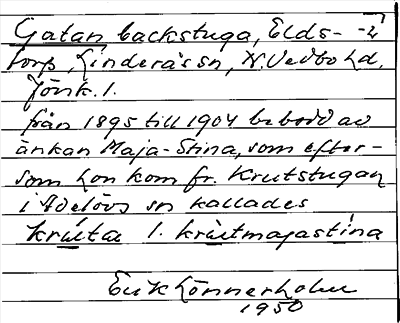 Gatan, backstuga, Elds-
torp, Linderås sn, N. Vedbo hd,
Jönk. l.
från 1895 till 1904 bebodd av
änkan Maja-Stina, som efter-
som hon kom fr. Krutstugan
i Adelövs sn kallades
kruta l. krutmajastina
Erik Lönnerholm
1950